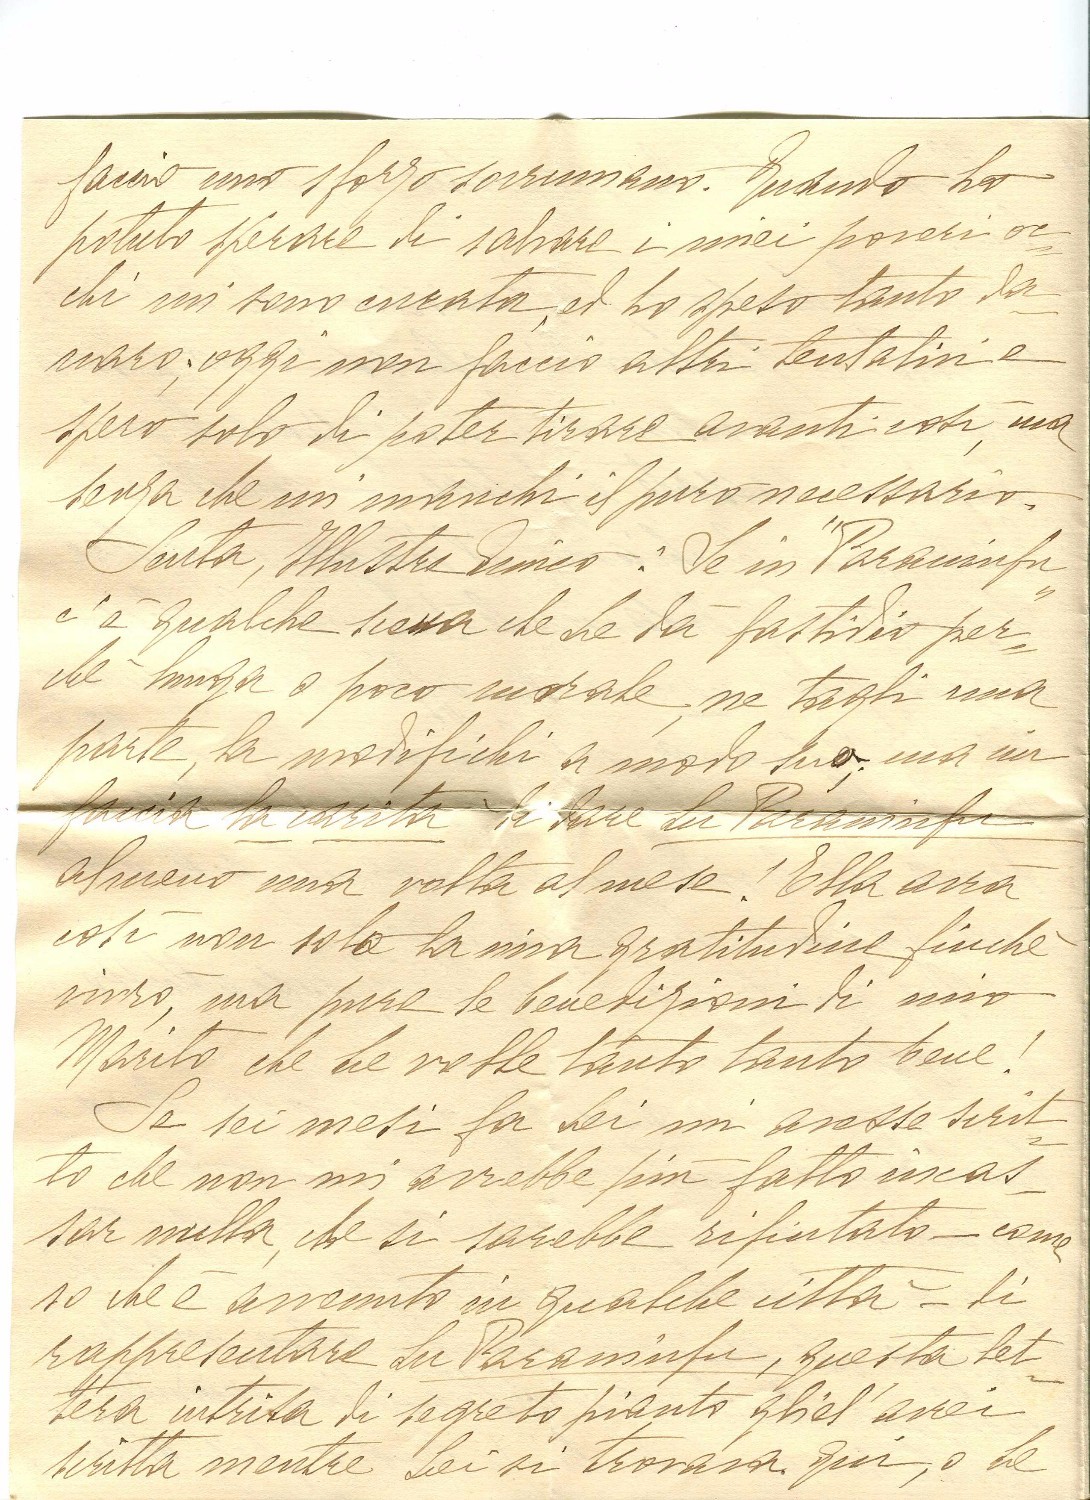 faccio uno sforzo sovrumano. Quando ho
potuto sperare di salvare i miei poveri oc=
chi mi sono curata, ed ho speso tanto da-
naro; oggi non faccio altri tentativi e
spero solo di poter tirare avanti così, ma
senza che mi manchi il puro necessario.
Senta, Illustre Amico: Se in "Paraninfu"
c'è qualche scena che Le dà fastidio per=
chè lunga o poco morale, ne tagli una
parte, la modifichi a modo suo; ma mi
faccia la carità di dare Lu Paraninfu
almeno una volta al mese! Ella avrà
così non solo la mia gratitudine finchè
vivrò, ma pure le benedizioni di mio
Marito che Le volle tanto tanto bene!
Se sei mesi fa Lei mi avesse scrit=
to che non mi avrebbe più fatto incas-
sar nulla, che si sarebbe rifiutato — come
so che è avvenuto in qualche città — di
rappresentare Lu Paraninfu, questa let=
tera intrisa di segreto pianto gliel'avrei
scritta mentre Lei si trovava qui, o Le